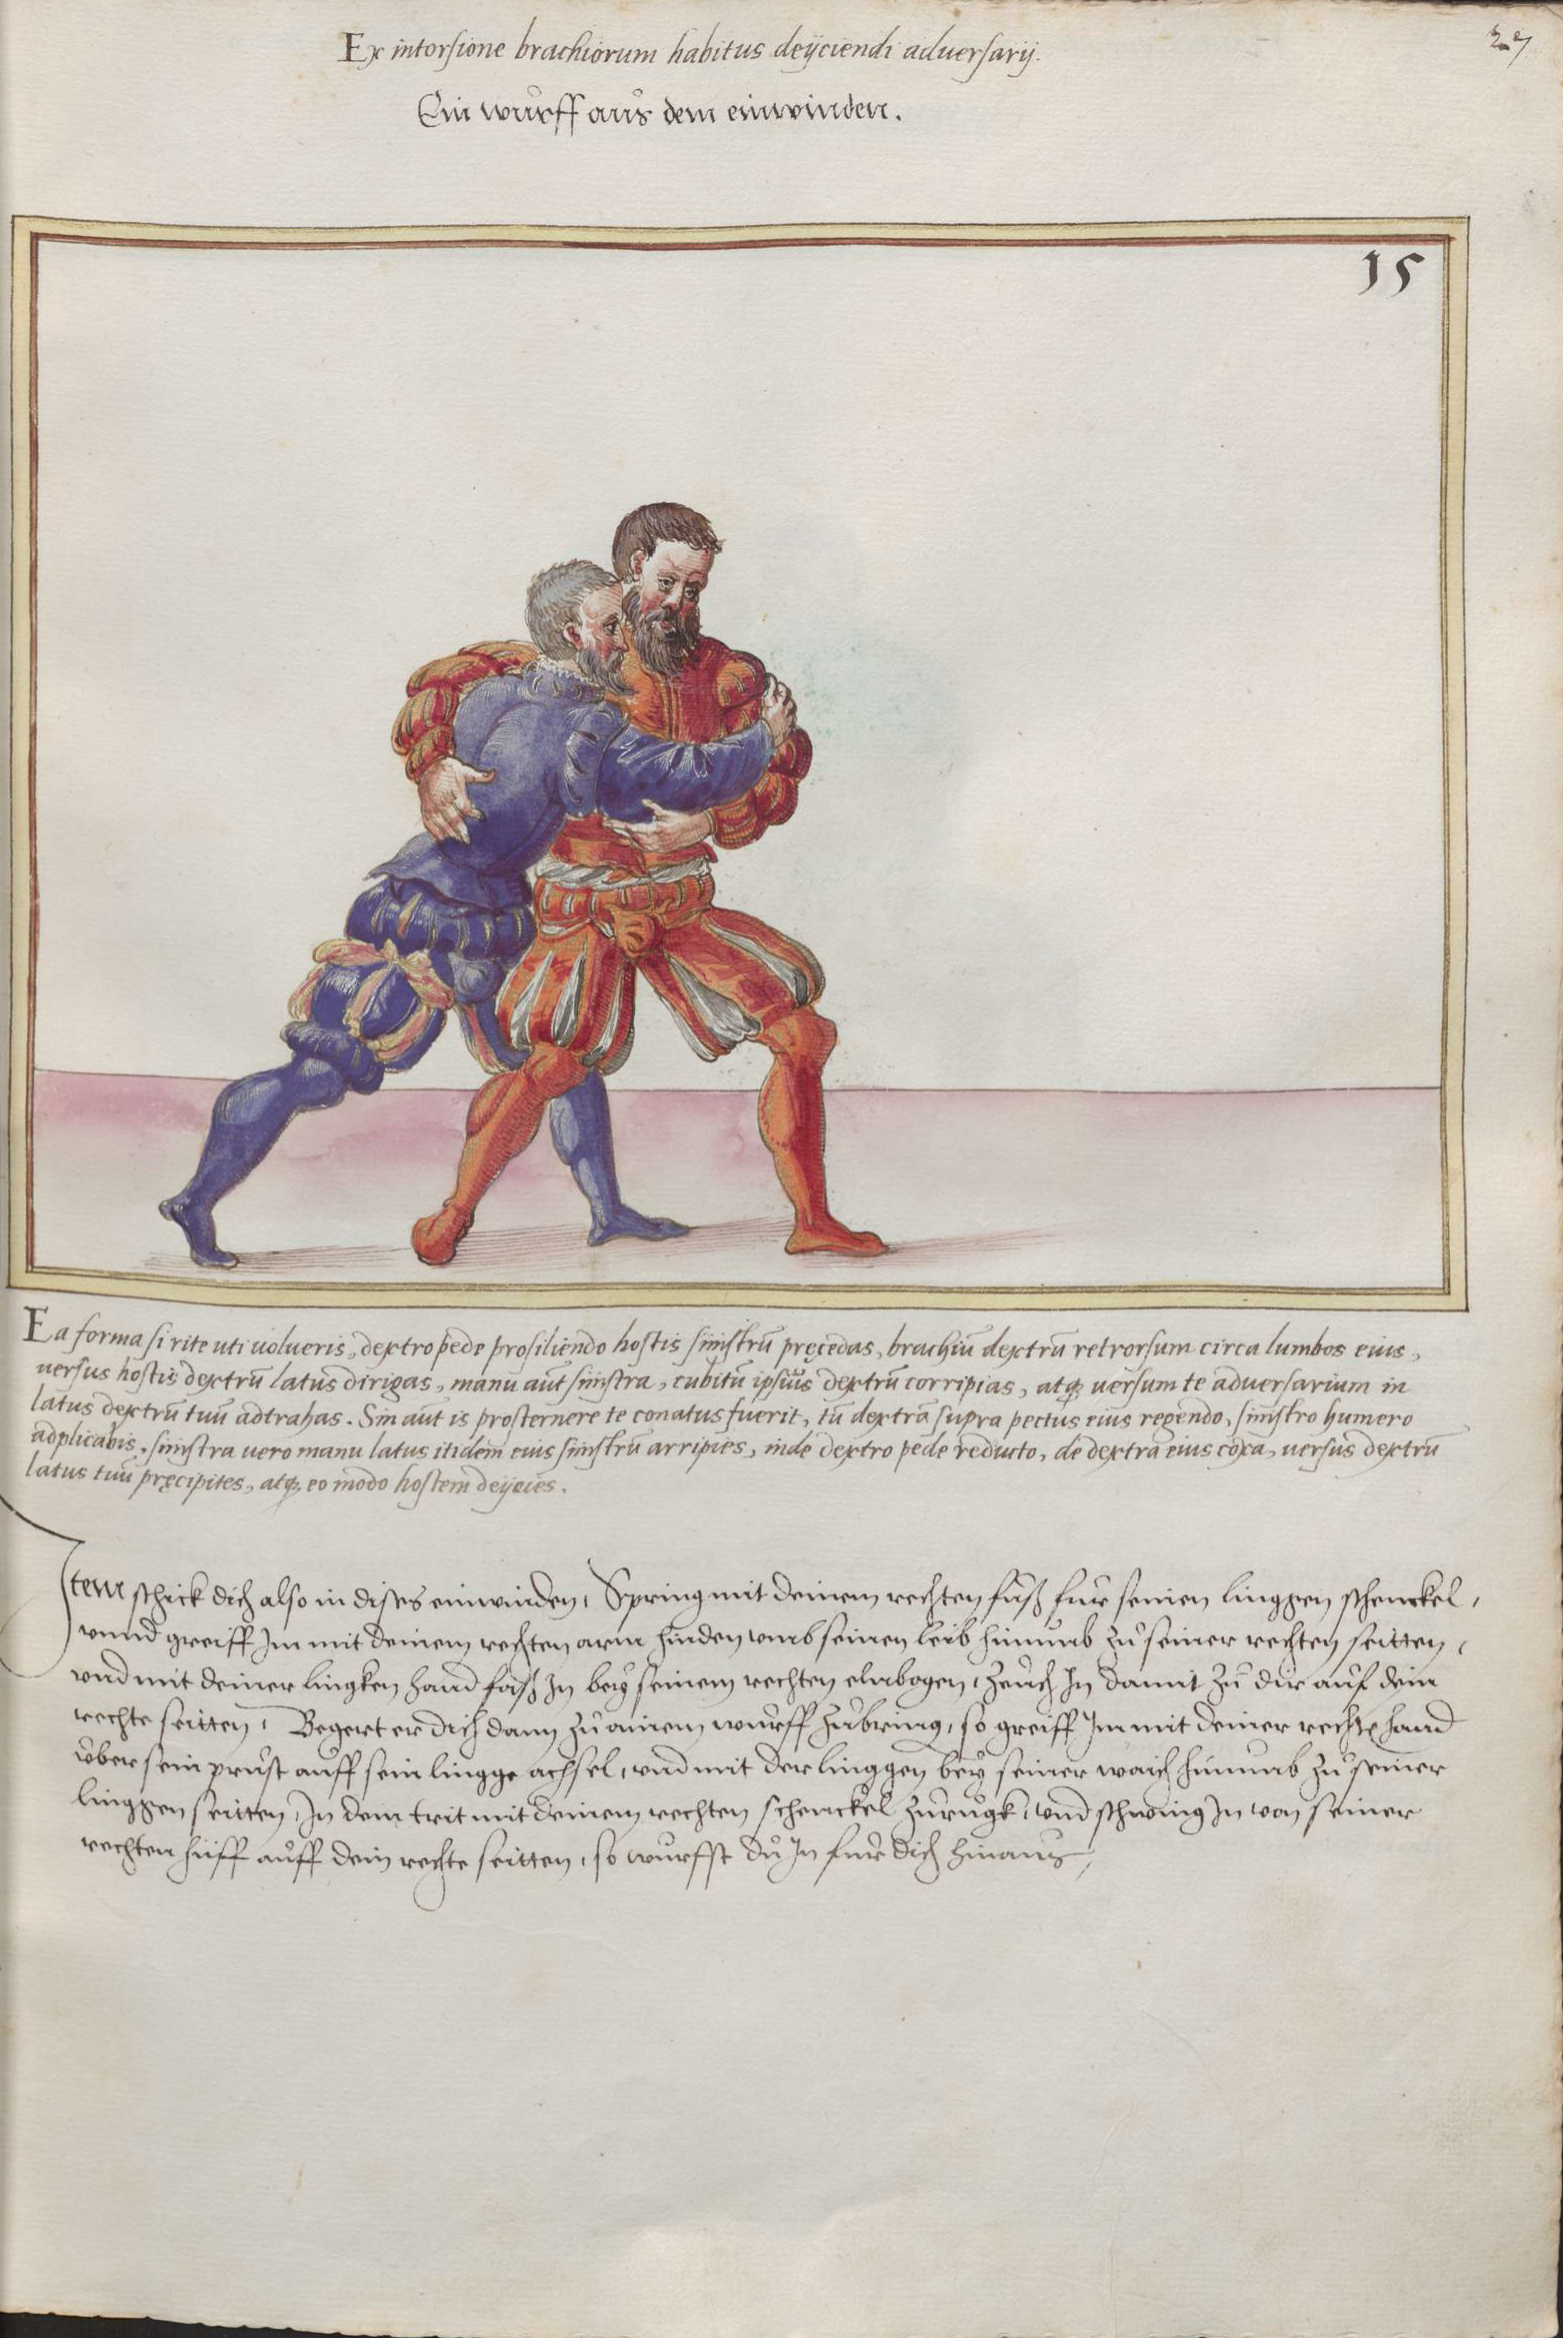 Ex intorsione brachiorum habitus deijciendi aduersarij.
27
Ein wurff aus dem einwinden.
15
Ea forma si rite uti uolueris, dextro pede prosiliendo hostis sinistrũ pręcedas, brachiũ dextrũ retrorsum circa lumbos eius,
uersus hostis dextrũ latus dirigas, manu aut̃ sinistra, cubitũ ipsius dextrũ corripias, atq; uersum te aduersarium in
latus dextrũ tuũ adtrahas. Sin aut̃ is prosternere te conatus fuerit, tũ dextrã supra pectus eius regendo, sinistro humero
adplicabis, sinistra uero manu latus itidem eius sinistrũ arripies, inde dextro pede reducto, de dextra eius coxa, uersus dextrũ
latus tuũ pręcipites, atq; eo modo hostem deijcies.
Item schick dich also in dises einwinden, Spring mit deinem rechten fůß für seinen linggen schenckel,
vnnd greiff Im mit deinem rechten arm hinden vmb seinen leib hinumb zů seiner rechten seitten,
vnd mit deiner lingken hand faß In bey seinem rechten elnbogen, zeuch In damit zů dir auf dein
rechte seitten, Begert er dich dann zů ainem wurff zůbring, so greiff Im mit deiner rechtẽ hand
über sein prust auff sein lingge achsel, vnd mit der linggen bey seiner waich hinumb zů seiner
linggen seitten, In dem trit mit deinem rechten schenckel zůrugk, vnd schwing In von seiner
rechten hüff auff dein rechte seitten, so wurffst du In für dich hinaus,